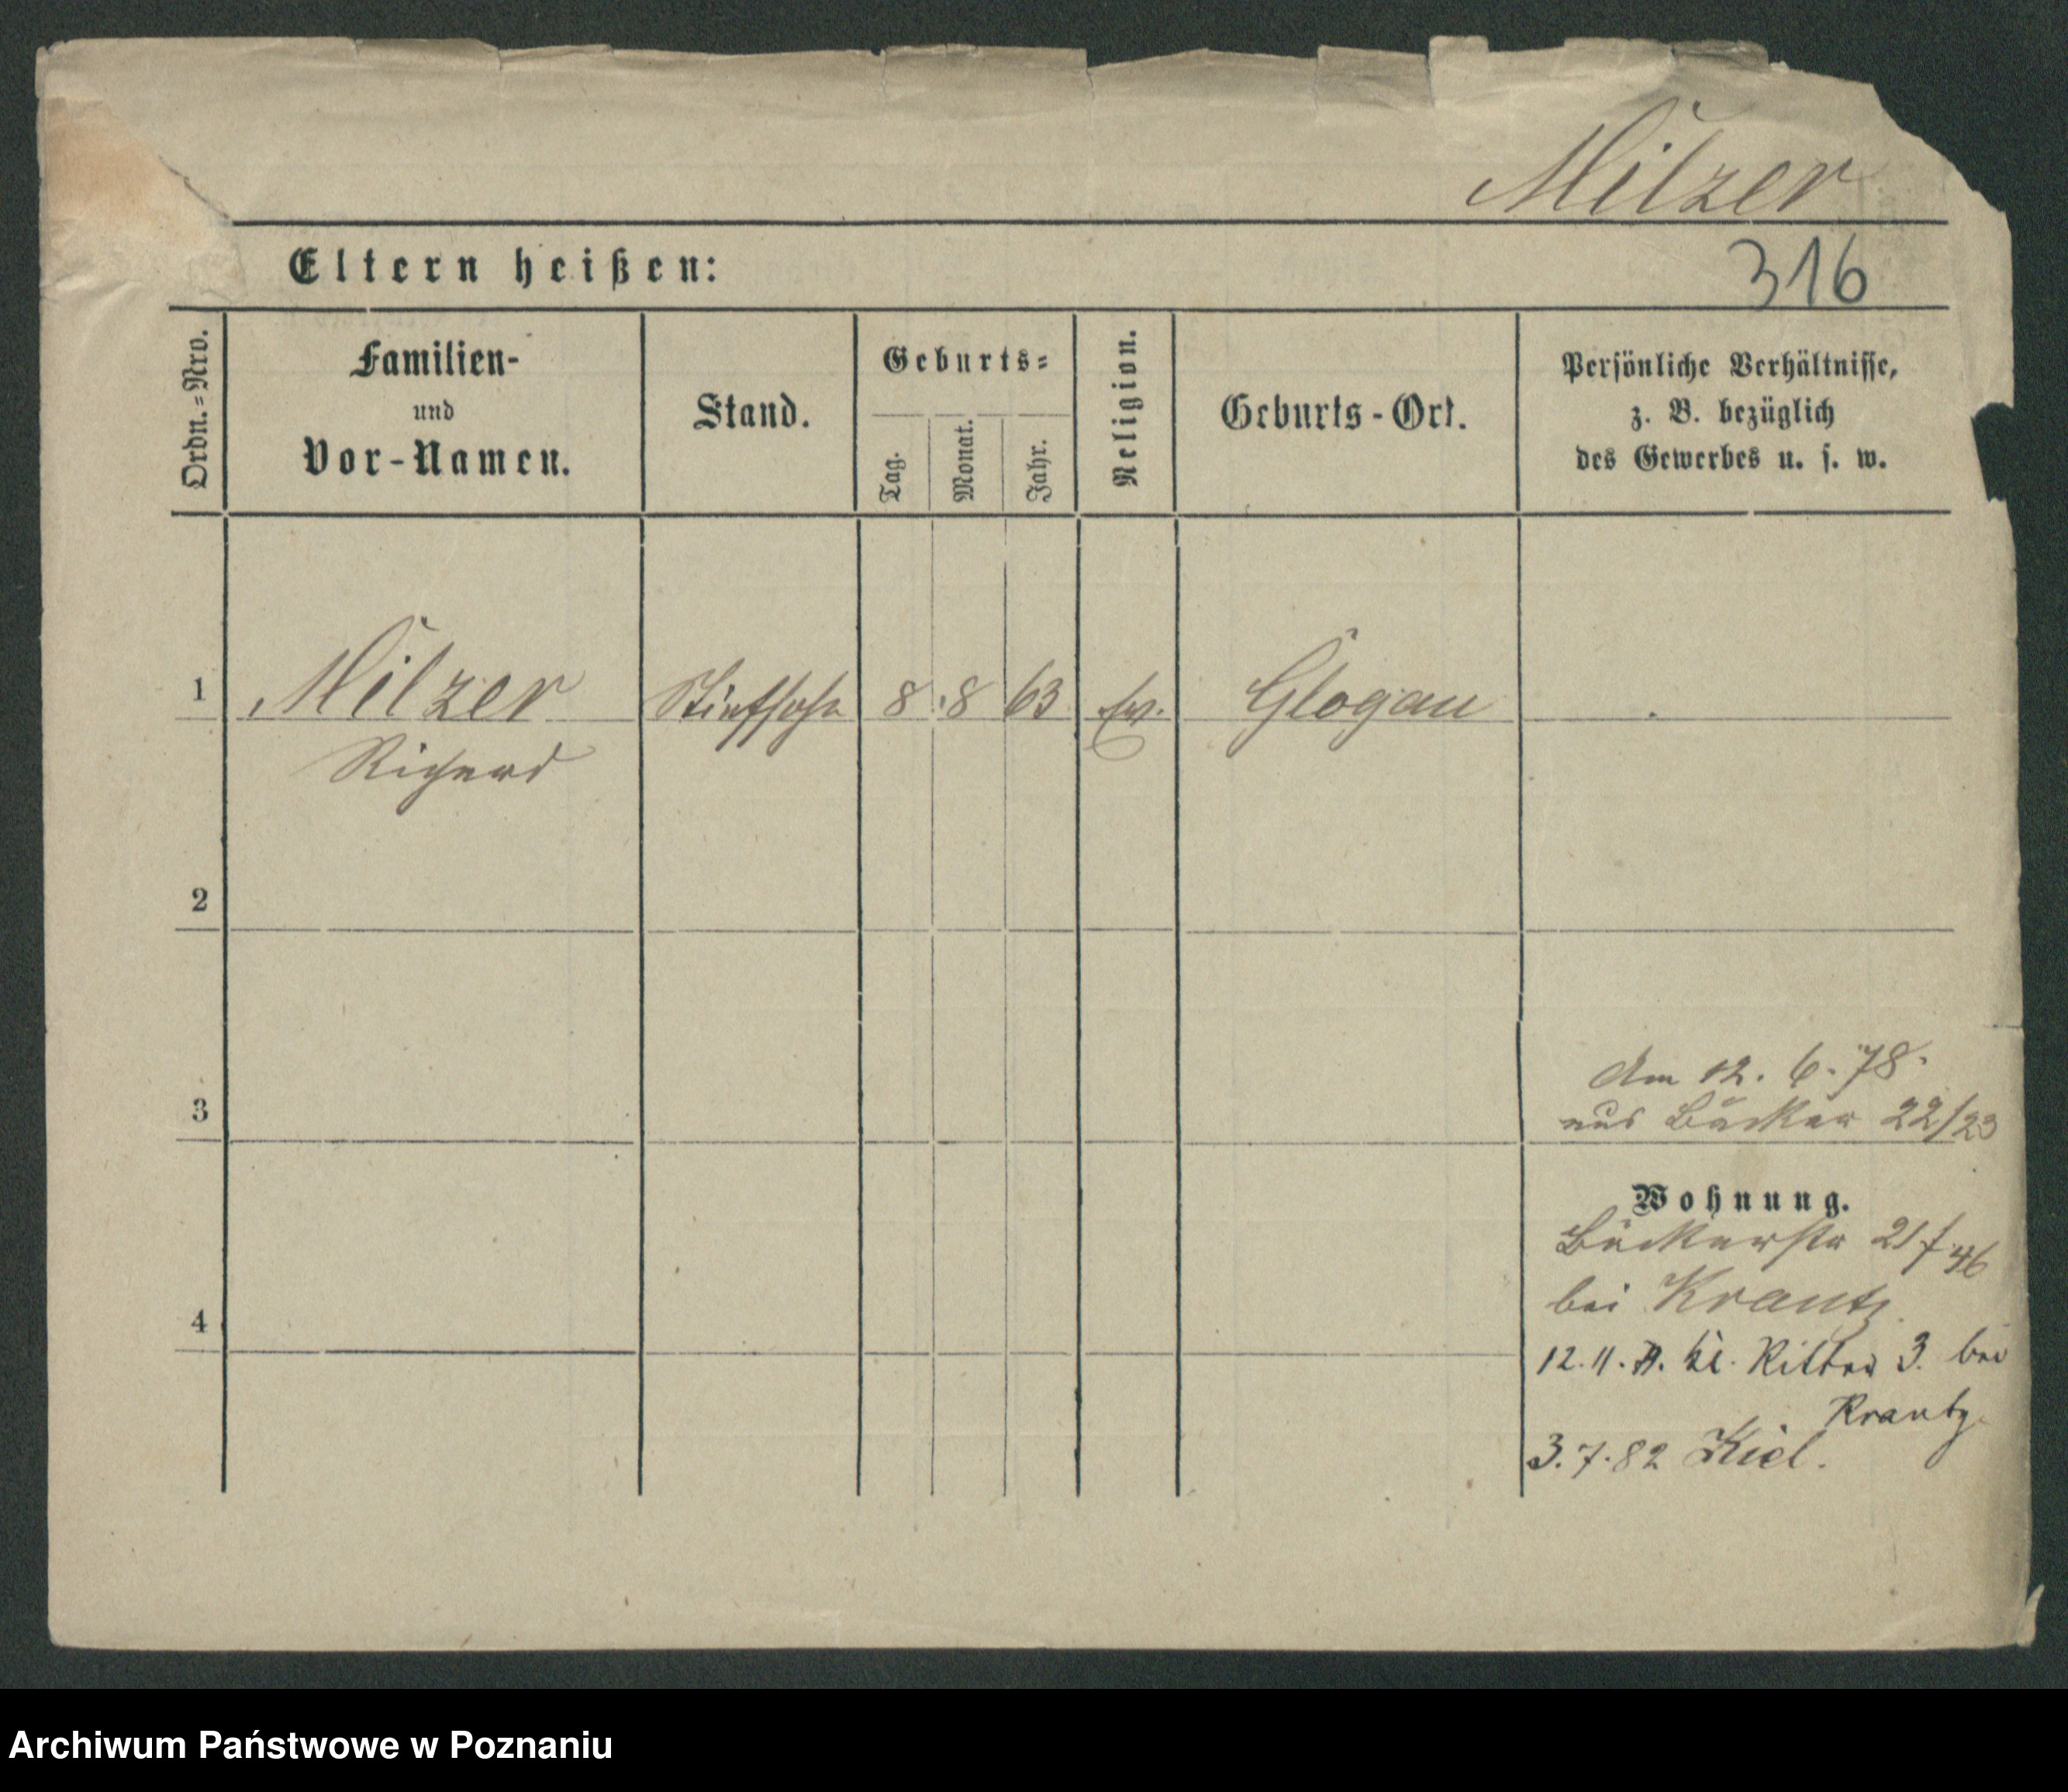 Milzer
Eltern heißen:
316
Ordn.=Nro.
Familien-
und
Vor-Namen.
Stand.
Geburts=
Tag.
Monat.
Jahr.
Religion.
Geburts-Ort.
Persönliche Verhältnisse,
z. B. bezüglich
des Gewerbes u. s. w.
1
Milzer
Stiefsohn
8
8
63
Ev.
Glogau
Richard
2
Am 12. 6. 78.
aus Bäcker 22/23
3
Wohnung.
Bäckerstr 21
bei Krantz
4
12. 11. kl. Ritter 3. bei
Krantz
3. 7. 82 Kiel.
Archiwum Państwowe w Poznaniu